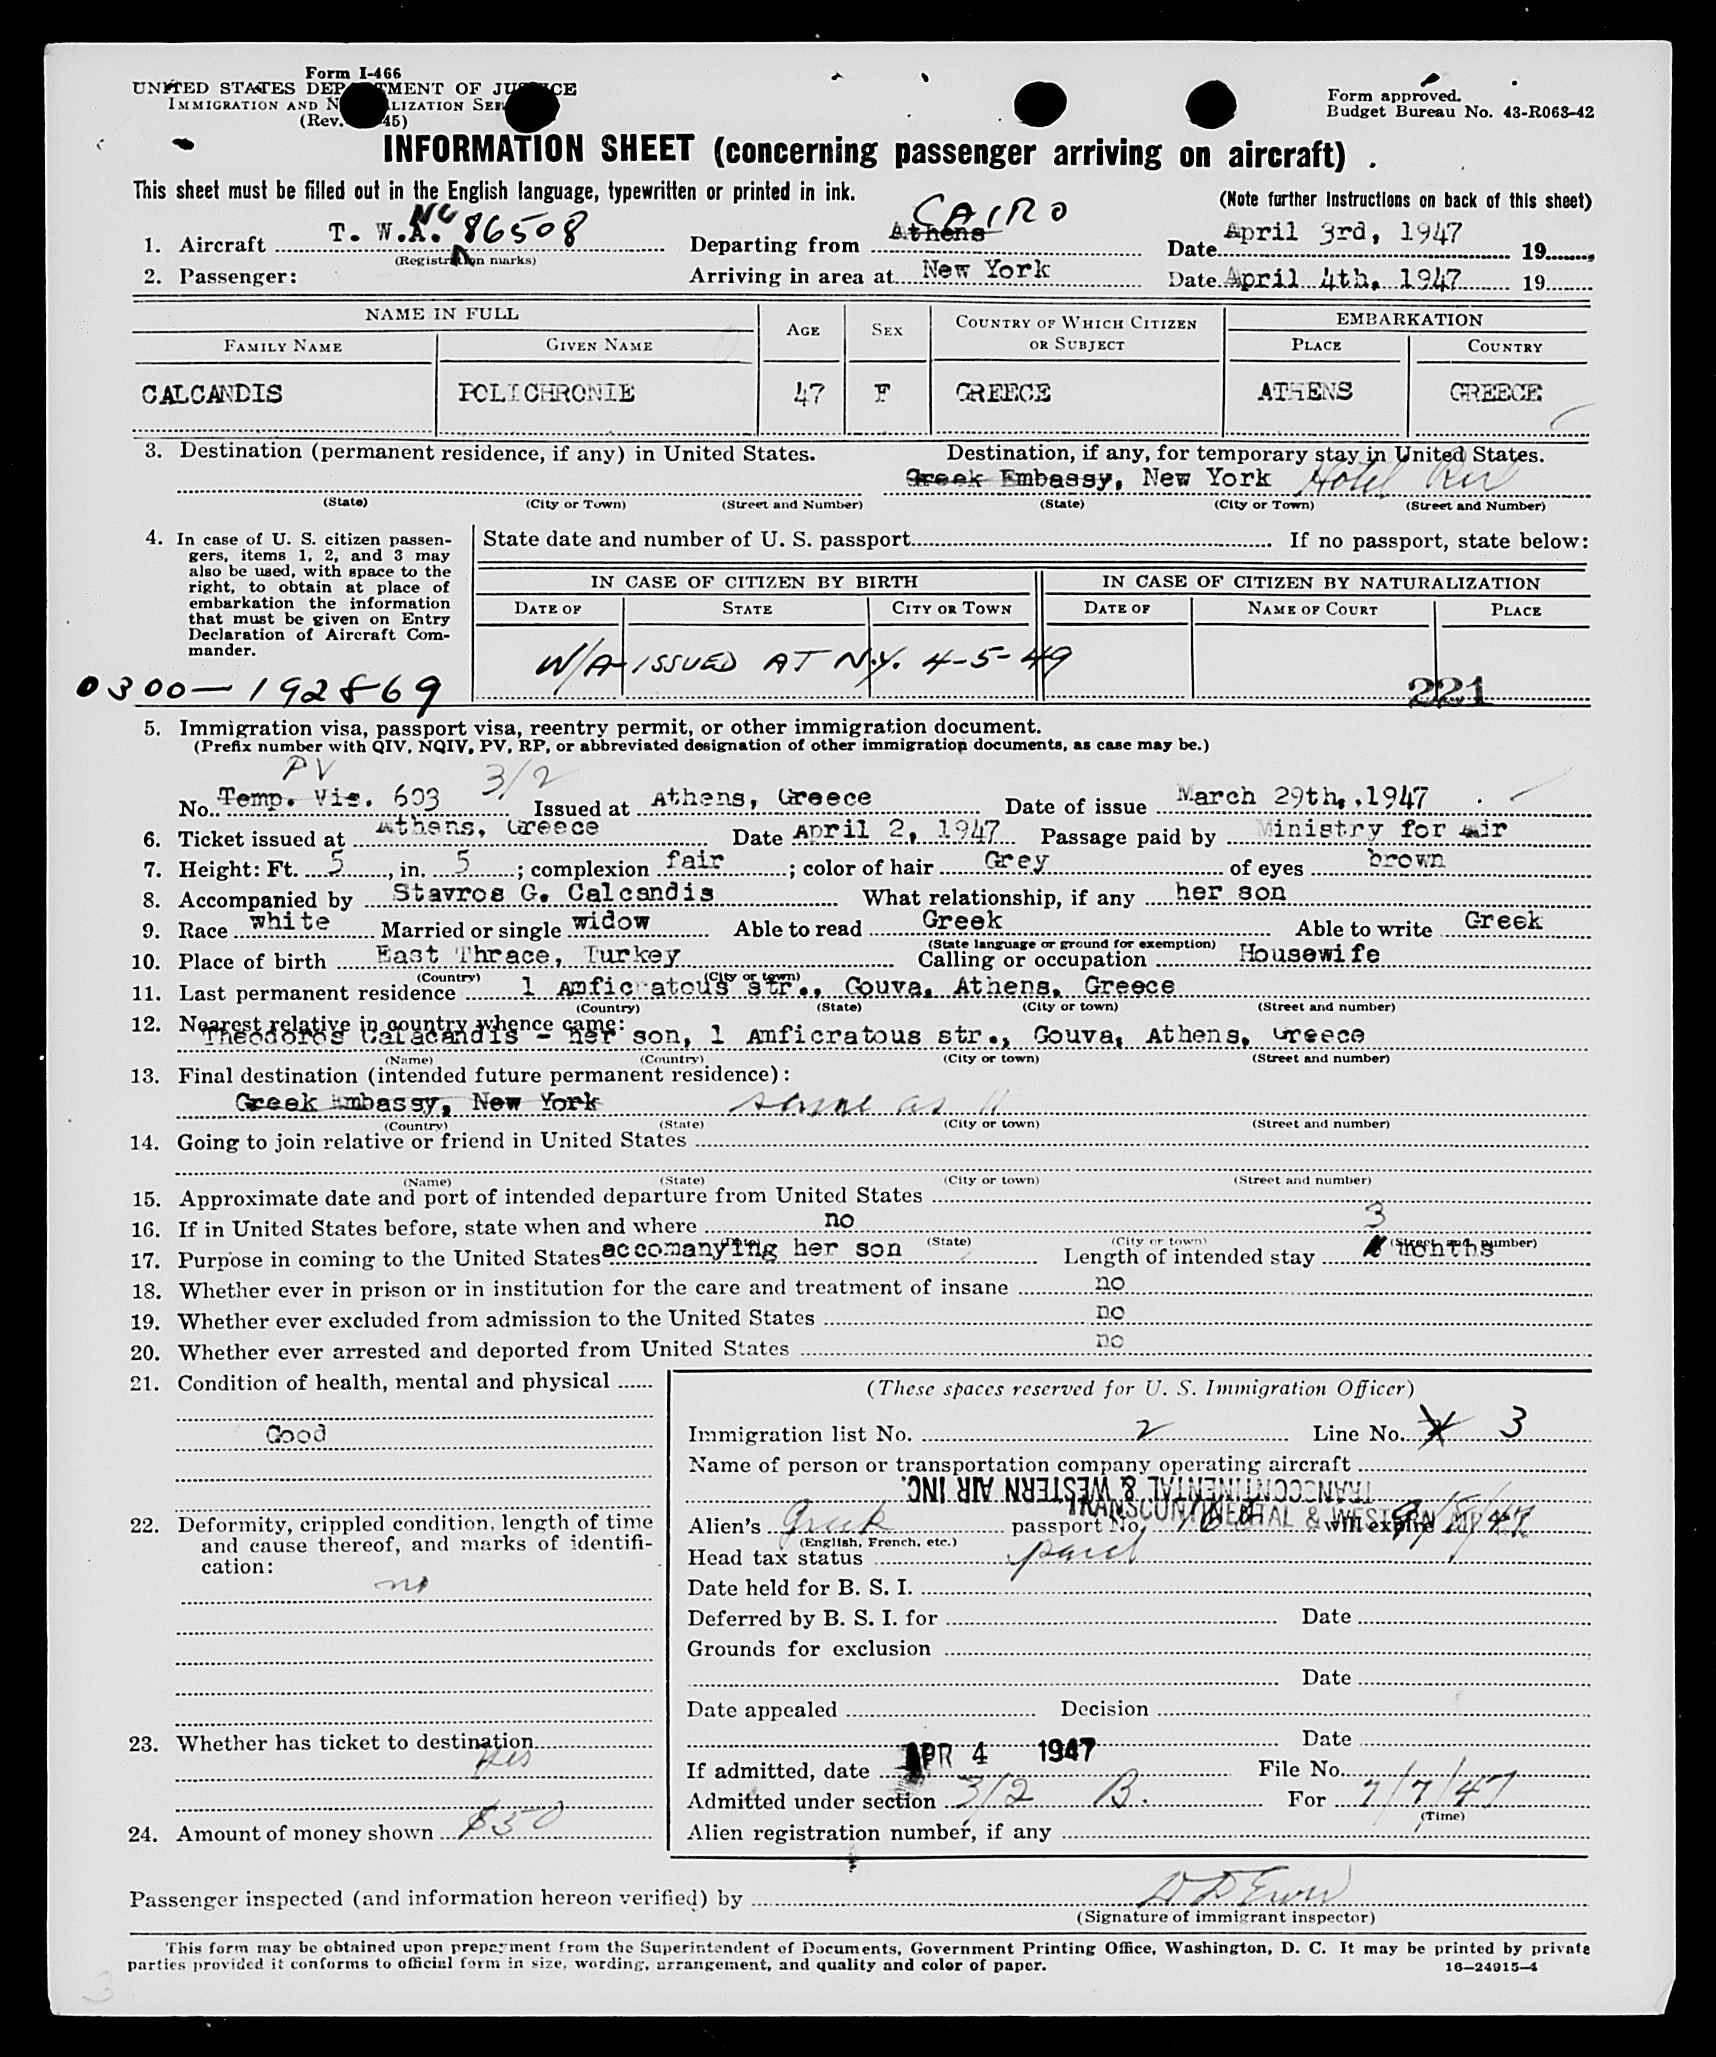 Form I-466
UNITED STATES DEPARTMENT OF JUSTICE
IMMIGRATION AND NATURALIZATION SERVICE
(Rev. 45)
Form approved.
Budget Bureau No. 43-R063-42
INFORMATION SHEET (concerning passenger arriving on aircraft)
This sheet must be filled out in the English language, typewritten or printed in ink.
(Note further instructions on back of this sheet)
1. Aircraft T. W.A. NC 86508 Departing from Athens CAIRO Date April 3rd, 1947 19
(Registration marks)
2. Passenger: Arriving in area at New York Date April 4th, 1947 19
NAME IN FULL AGE SEX COUNTRY OF WHICH CITIZEN OR SUBJECT EMBARKATION
FAMILY NAME GIVEN NAME PLACE COUNTRY
CALCANDIS POLICHRONIE 47 F GREECE ATHENS GREECE
3. Destination (permanent residence, if any) in United States. Destination, if any, for temporary stay in United States.
Greek Embassy, New York Hotel
(State) (City or Town) (Street and Number) (State) (City or Town) (Street and Number)
4. In case of U. S. citizen passen-
gers, items 1, 2, and 3 may
also be used, with space to the
right, to obtain at place of
embarkation the information
that must be given on Entry
Declaration of Aircraft Com-
mander.
State date and number of U. S. passport If no passport, state below:
IN CASE OF CITIZEN BY BIRTH IN CASE OF CITIZEN BY NATURALIZATION
DATE OF STATE CITY OR TOWN DATE OF NAME OF COURT PLACE
W/A ISSUED AT N.Y. 4-5-49
0300-192869 221
5. Immigration visa, passport visa, reentry permit, or other immigration document.
(Prefix number with QIV, NQIV, PV, RP, or abbreviated designation of other immigration documents, as case may be.)
PV 3/2
No. Temp. Vis. 603 Issued at Athens, Greece Date of issue March 29th, 1947
6. Ticket issued at Athens, Greece Date April 2, 1947 Passage paid by Ministry for Air
7. Height: Ft. 5, in. 5; complexion fair; color of hair Grey of eyes brown
8. Accompanied by Stavros G. Calcandis What relationship, if any her son
9. Race white Married or single widow Able to read Greek Able to write Greek
(State language or ground for exemption)
10. Place of birth East Thrace, Turkey Calling or occupation Housewife
(Country) (City or town)
11. Last permanent residence 1 Amficratous str., Gouva, Athens, Greece
(Country) (State) (City or town) (Street and number)
12. Nearest relative in country whence came:
Theodoros Calacandis - her son, 1 Amficratous str., Gouva, Athens, Greece
(Name) (Country) (City or town) (Street and number)
13. Final destination (intended future permanent residence):
Greek Embassy, New York same as 11
(Country) (State) (City or town) (Street and number)
14. Going to join relative or friend in United States
(Name) (State) (City or town) (Street and number)
15. Approximate date and port of intended departure from United States
16. If in United States before, state when and where no 3
(Date) (State) (City or town) (Street and number)
17. Purpose in coming to the United States accomanying her son Length of intended stay months
18. Whether ever in prison or in institution for the care and treatment of insane no
19. Whether ever excluded from admission to the United States no
20. Whether ever arrested and deported from United States no
21. Condition of health, mental and physical
Good
22. Deformity, crippled condition, length of time
and cause thereof, and marks of identifi-
cation:
no
23. Whether has ticket to destination
yes
24. Amount of money shown $50
(These spaces reserved for U. S. Immigration Officer)
Immigration list No. 2 Line No. 3
Name of person or transportation company operating aircraft
TRANSCONTINENTAL & WESTERN AIR INC.
TRANSCONTINENTAL & WESTERN AIR
Alien's Greek passport No. will expire
(English, French, etc.)
Head tax status paid
Date held for B. S. I.
Deferred by B. S. I. for Date
Grounds for exclusion
Date
Date appealed Decision
Date
If admitted, date APR 4 1947 File No.
Admitted under section 3/2 B. For 7/7/47
(Time)
Alien registration number, if any
Passenger inspected (and information hereon verified) by
(Signature of immigrant inspector)
This form may be obtained upon prepayment from the Superintendent of Documents, Government Printing Office, Washington, D. C. It may be printed by private
parties provided it conforms to official form in size, wording, arrangement, and quality and color of paper. 16-24915-4
3